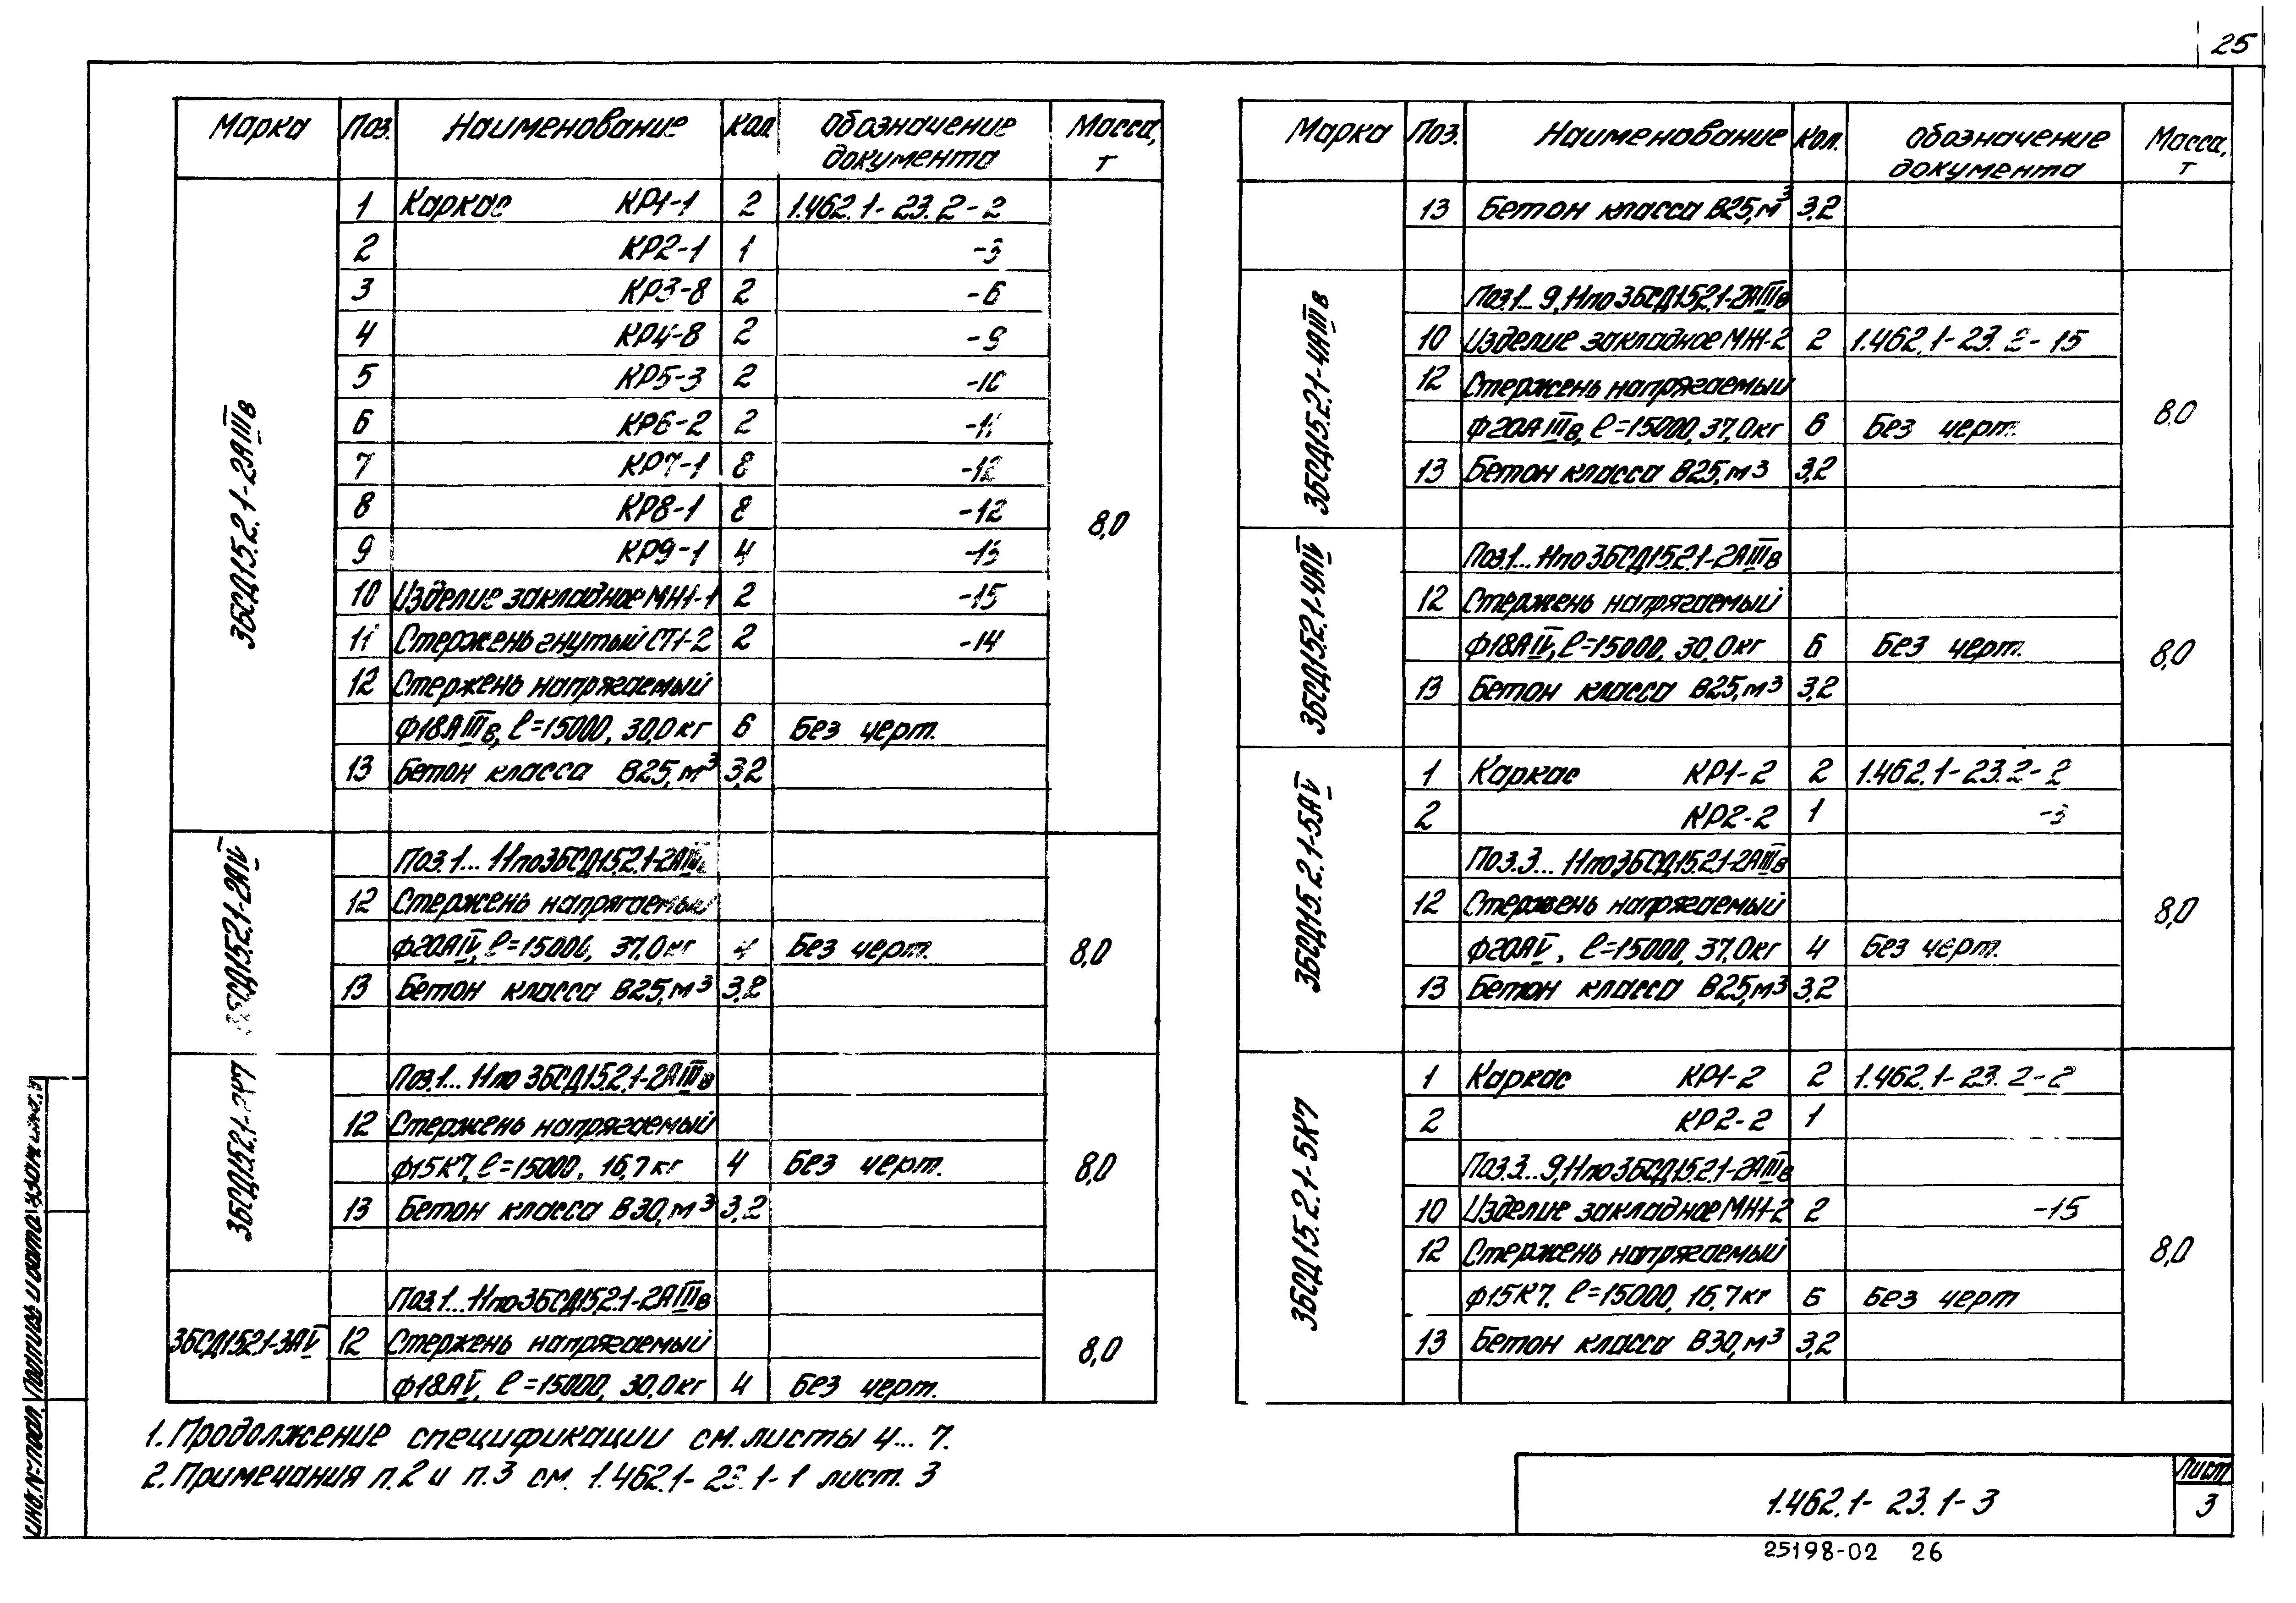 25
Марка Поз. Наименование Кол. Обозначение документа Масса, т
3БСД15.2.1-2АIIIв
1 Каркас КР1-1 2 1.462.1-23.2-2
2 КР2-1 1 -3
3 КР3-8 2 -6
4 КР4-8 2 -9
5 КР5-3 2 -10
6 КР6-2 2 -11
7 КР7-1 8 -12
8 КР8-1 8 -12
8,0
9 КР9-1 4 -13
10 Изделие закладное МН1-1 2 -15
11 Стержень гнутый СТ1-2 2 -14
12 Стержень напрягаемый
Ф18АIIIв, ℓ=15000, 30,0кг 6 Без черт.
13 Бетон класса В25, м³ 3,2
3БСД15.2.1-2АIV
Поз.1...11 по 3БСД15.2.1-2АIIIв
12 Стержень напрягаемый
Ф20АIV, ℓ=15000, 37,0кг 4 Без черт. 8,0
13 Бетон класса В25, м³ 3,2
3БСД15.2.1-2К7
Поз.1...11 по 3БСД15.2.1-2АIIIв
12 Стержень напрягаемый
Ф15К7, ℓ=15000, 16,7кг 4 Без черт. 8,0
13 Бетон класса В30, м³ 3,2
3БСД15.2.1-3АV
Поз.1...11 по 3БСД15.2.1-2АIIIв
12 Стержень напрягаемый 8,0
Ф18АV, ℓ=15000, 30,0кг 4 Без черт.
Марка Поз. Наименование Кол. Обозначение документа Масса, т
13 Бетон класса В25, м³ 3,2
3БСД15.2.1-4АIIIв
Поз.1...9, 11 по 3БСД15.2.1-2АIIIв
10 Изделие закладное МН1-2 2 1.462.1-23.2-15
12 Стержень напрягаемый
Ф20АIIIв, ℓ=15000, 37,0кг 6 Без черт. 8,0
13 Бетон класса В25, м³ 3,2
3БСД15.2.1-4АIV
Поз.1...11 по 3БСД15.2.1-2АIIIв
12 Стержень напрягаемый
Ф18АIV, ℓ=15000, 30,0кг 6 Без черт. 8,0
13 Бетон класса В25, м³ 3,2
3БСД15.2.1-5АV
1 Каркас КР1-2 2 1.462.1-23.2-2
2 КР2-2 1 -3
Поз.3...11 по 3БСД15.2.1-2АIIIв
12 Стержень напрягаемый 8,0
Ф20АV, ℓ=15000, 37,0кг 4 Без черт.
13 Бетон класса В25, м³ 3,2
3БСД15.2.1-5К7
1 Каркас КР1-2 2 1.462.1-23.2-2
2 КР2-2 1
Поз.3...9, 11 по 3БСД15.2.1-2АIIIв
10 Изделие закладное МН1-2 2 -15
12 Стержень напрягаемый 8,0
Ф15К7, ℓ=15000, 16,7кг 6 Без черт
13 Бетон класса В30, м³ 3,2
1. Продолжение спецификации см. листы 4...7.
2. Примечания п.2 и п.3 см. 1.462.1-23.1-1 лист. 3
Инв.№ подл. Подпись и дата Взам. инв. №
1.462.1-23.1-3
Лист
3
25198-02 26